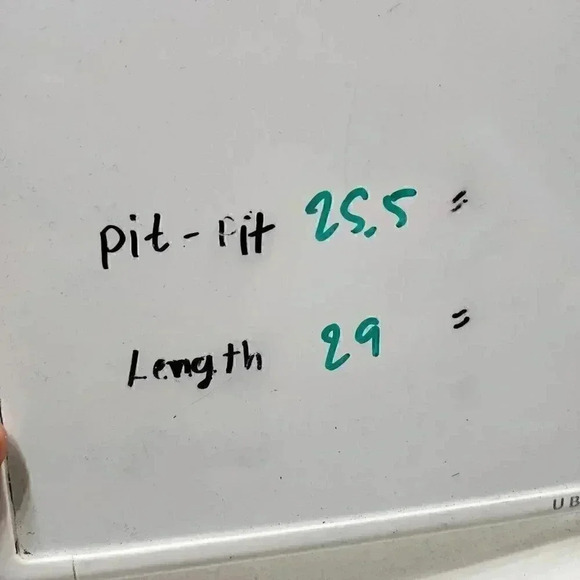 pit - pit 25.5 "
Length 29 "
UB